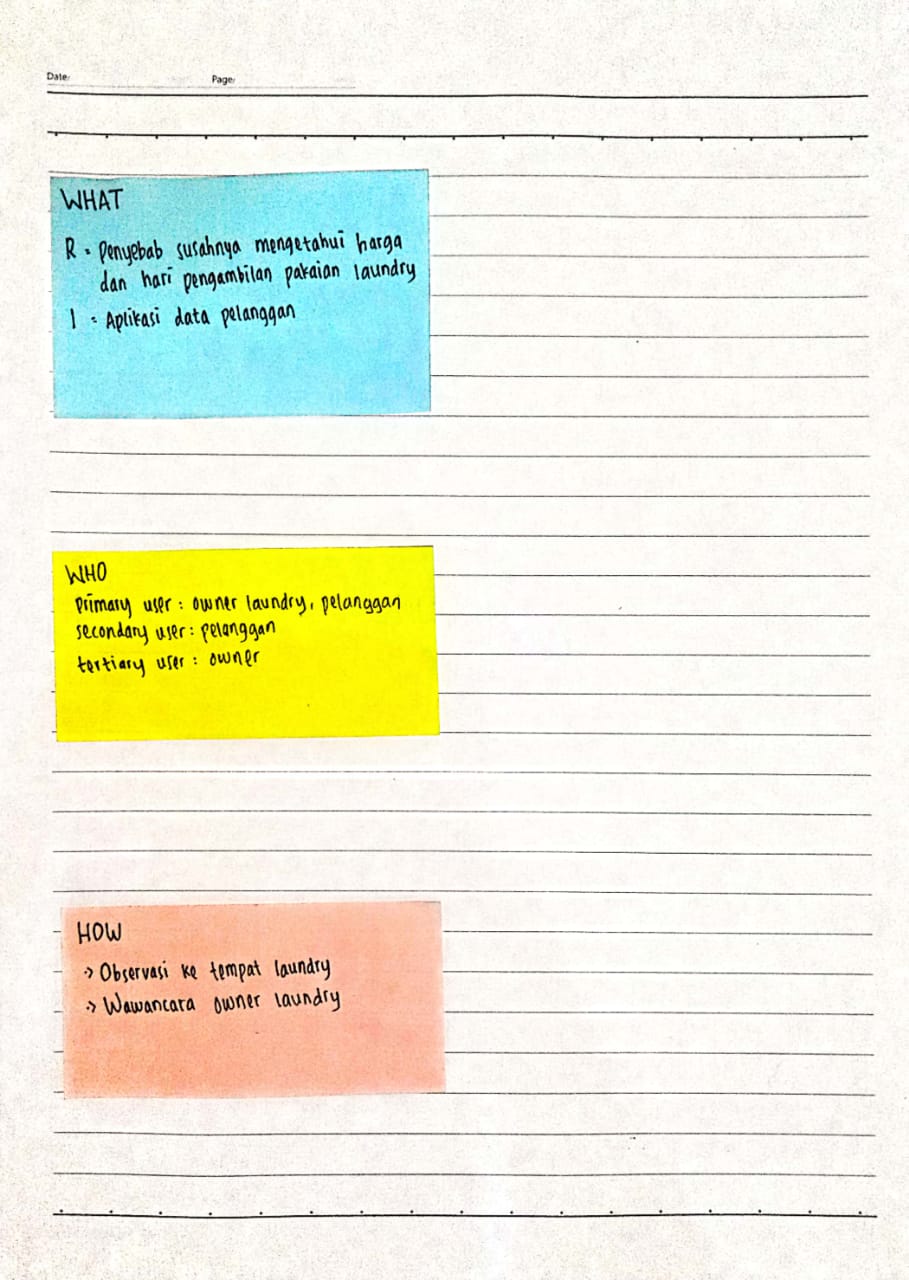 Date:
Page:
WHAT
R = Penyebab susahnya mengetahui harga
dan hari pengambilan pakaian laundry
I = Aplikasi data pelanggan
WHO
Primary user : owner laundry, pelanggan
secondary user : pelanggan
tertiary user : owner
HOW
-> Observasi ke tempat laundry
-> Wawancara owner laundry